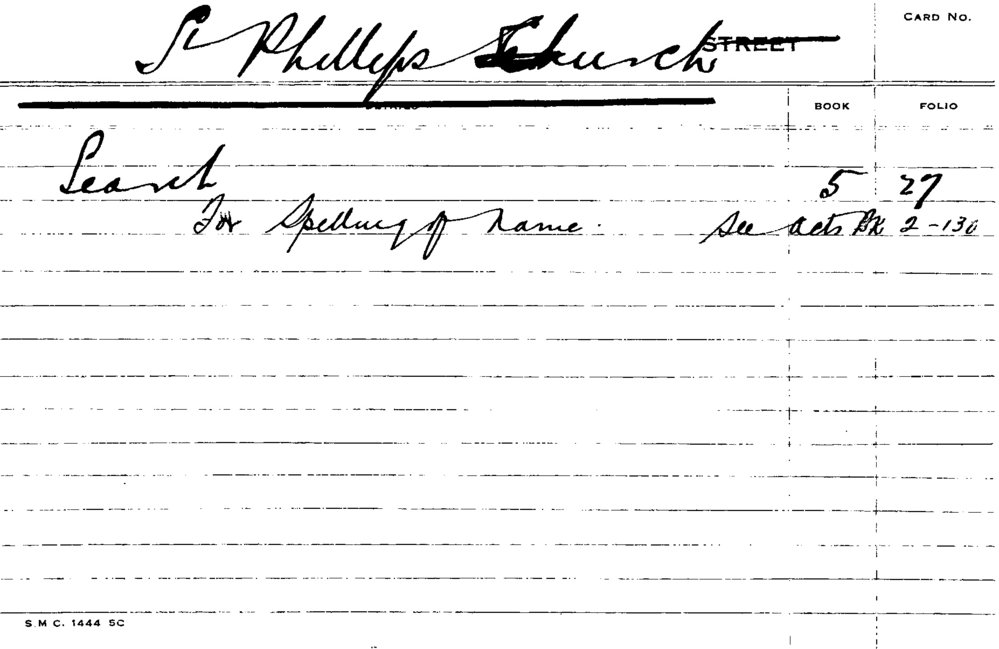 St Phillips Church STREET CARD No.
BOOK FOLIO
Search 5 27
For Spelling of Name. See Acts Bk 2-130
S.M C. 1444 5C